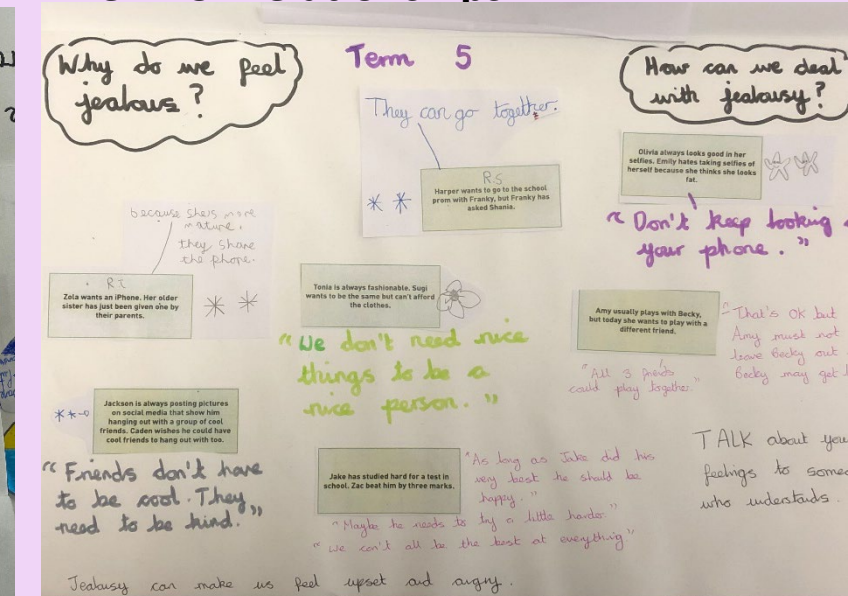 Why do we feel
jealous?
Term 5
How can we deal
with jealousy?
They can go together.
R.S
Harper wants to go to the school
prom with Franky, but Franky has
asked Shania.
Olivia always looks good in her
selfies. Emily hates taking selfies of
herself because she thinks she looks
fat.
"Don't keep looking
your phone."
because she's more
mature,
they share
the phone.
RT
Zola wants an iPhone. Her older
sister has just been given one by
their parents.
Tonia is always fashionable. Sugi
wants to be the same but can't afford
the clothes.
"We don't need nice
things to be a
nice person."
Amy usually plays with Becky,
but today she wants to play with a
different friend.
"That's OK but
Amy must not
leave Becky out
Becky may get
"All 3 friends
could play together."
Jackson is always posting pictures
on social media that show him
hanging out with a group of cool
friends. Caden wishes he could have
cool friends to hang out with too.
"Friends don't have
to be cool. They
need to be kind."
Jake has studied hard for a test in
school. Zac beat him by three marks.
"As long as Jake did his
very best he should be
happy."
"Maybe he needs to try a little harder."
"We can't all be the best at everything"
TALK about you
feelings to someo
who understands.
Jealousy can make us feel upset and angry.